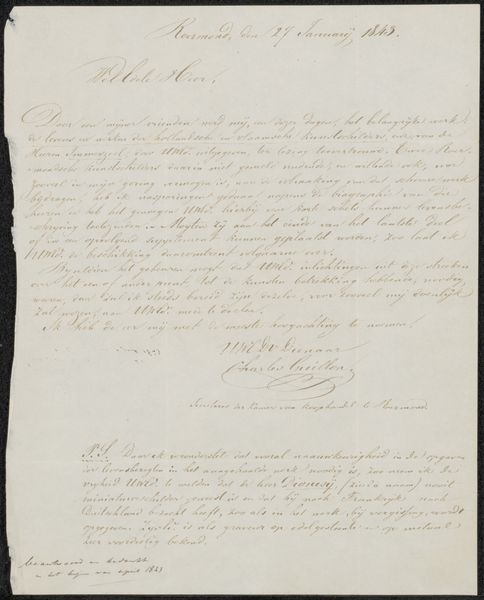 Roermond, den 27 Januarij, 1843.
Wel Edele Heer!
Door een mijner vrienden werd mij, in deze dagen, het belangrijke werk:
de levens en werken der hollandsche en vlaamsche kunstschilders, enz. van de
Heeren Immerzeel, door UEd. uitgegeven, ter lezing
mondsche kunstschilders daarin niet gemeld vindende, en willende ook, voor
zooveel in mijn gering vermogen is, aan de volmaking van dat schoone werk
bijdragen, heb ik nasporingen gedaan nopens de biographie van die
heeren en heb het genoegen UEd. hierbij eene korte schets hunner levensbe-
schrijving
of in een opvolgend supplement kunnen geplaatst worden, zoo laat ik
UEd. de beschikking daaromtrent volgaarne over.
Bijaldien het gebeuren mogt dat UEd. inlichtingen uit deze streken
over het een of ander punt tot de kunsten betrekking hebbende, noodig
waren, dan zal ik steeds bereid zijn dezelve, voor zooveel mij doenlijk
zal wezen, aan UEd. mede te deelen.
Ik heb de eer mij met de meeste hoogachting te noemen,
UEd. Dv. Dienaar
Charles Guillon,
Secretaris der Kamer van Koophandel te Roermond.
P.S. Daar ik veronderstel dat vooral naauwkeurigheid in de opgaven
der levensberigten in het aangehaalde werk noodig is, zoo neem ik de
vrijheid UEd. te melden dat de heer Dionisij (zie zijn naam) nooit
miniatuurschilder geweest is en dat hij noch Frankrijk noch
Duitschland bezocht heeft, zoo als in het werk, bij vergissing, wordt
opgegeven. Hij is als graveur op edelgesteente en op metaal
zeer voordeelig bekend.
beantwoord en bedankt
in het begin van april 1843